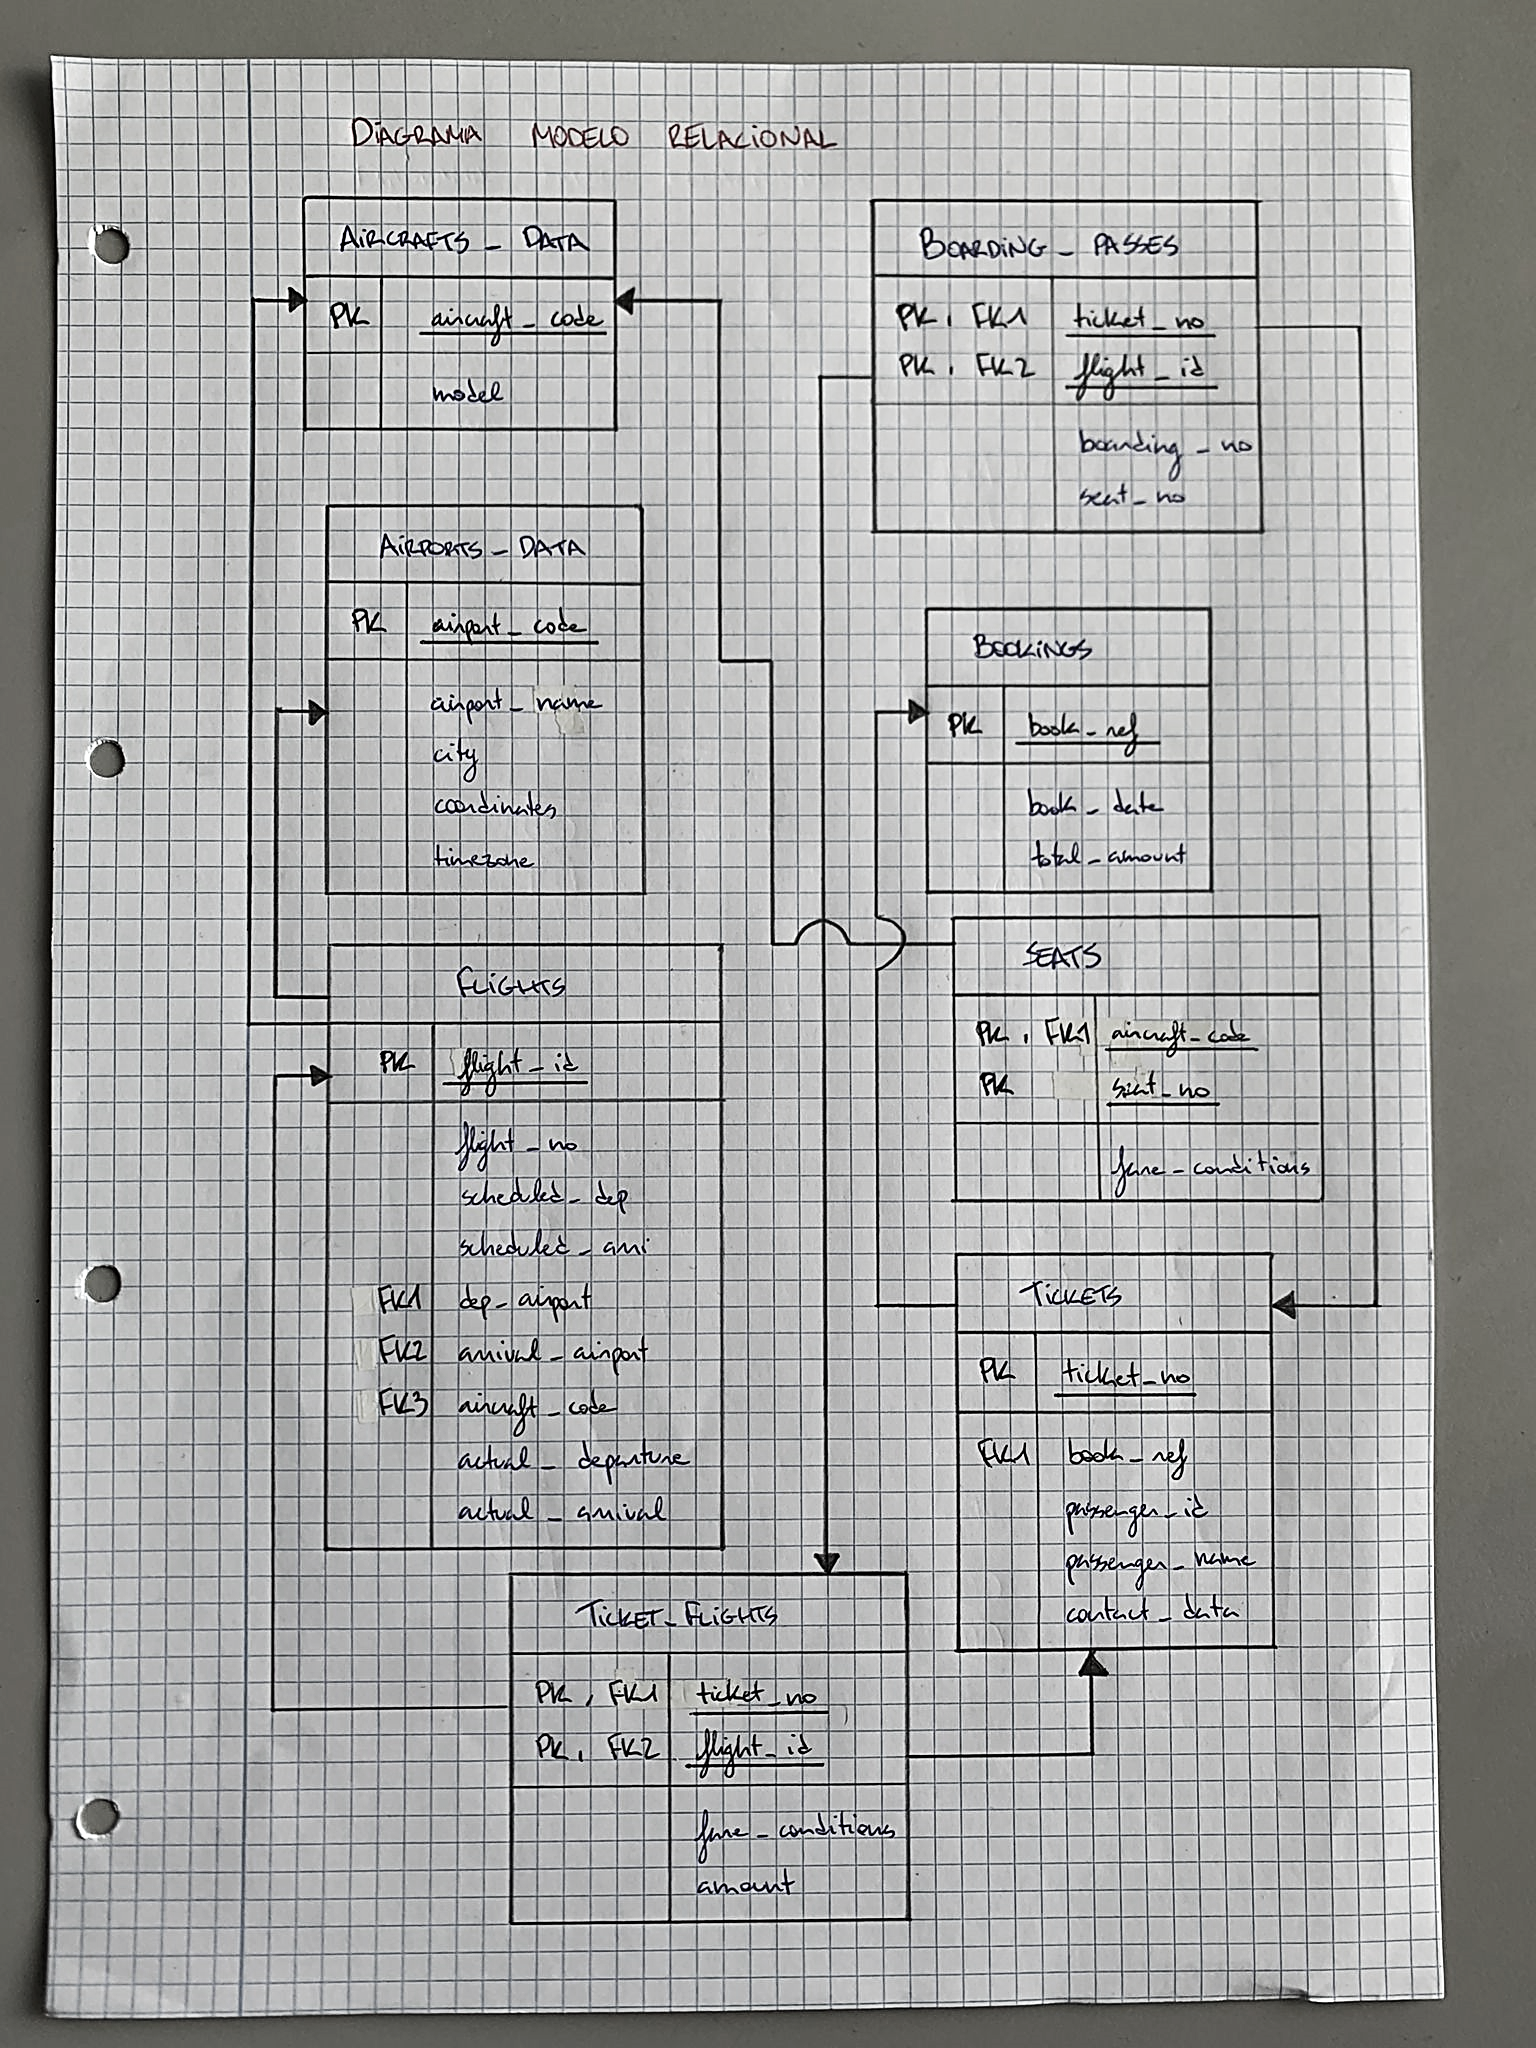 DIAGRAMA MODELO RELACIONAL
AIRCRAFTS_DATA
PK aircraft_code
model
BOARDING_PASSES
PK, FK1 ticket_no
PK, FK2 flight_id
boarding_no
seat_no
AIRPORTS_DATA
PK airport_code
airport_name
city
coordinates
timezone
BOOKINGS
PK book_ref
book_date
total_amount
FLIGHTS
PK flight_id
flight_no
scheduled_dep
scheduled_arri
FK1 dep_airport
FK2 arrival_airport
FK3 aircraft_code
actual_departure
actual_arrival
SEATS
PK, FK1 aircraft_code
PK seat_no
fare_conditions
TICKETS
PK ticket_no
FK1 book_ref
passenger_id
passenger_name
contact_data
TICKET_FLIGHTS
PK, FK1 ticket_no
PK, FK2 flight_id
fare_conditions
amount